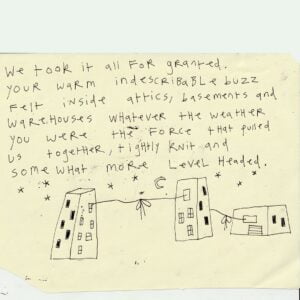 We took it all for granted.
Your warm indescribable buzz
felt inside attics, basements and
warehouses whatever the weather
you were the force that pulled
us together, tightly knit and
some what more level headed.